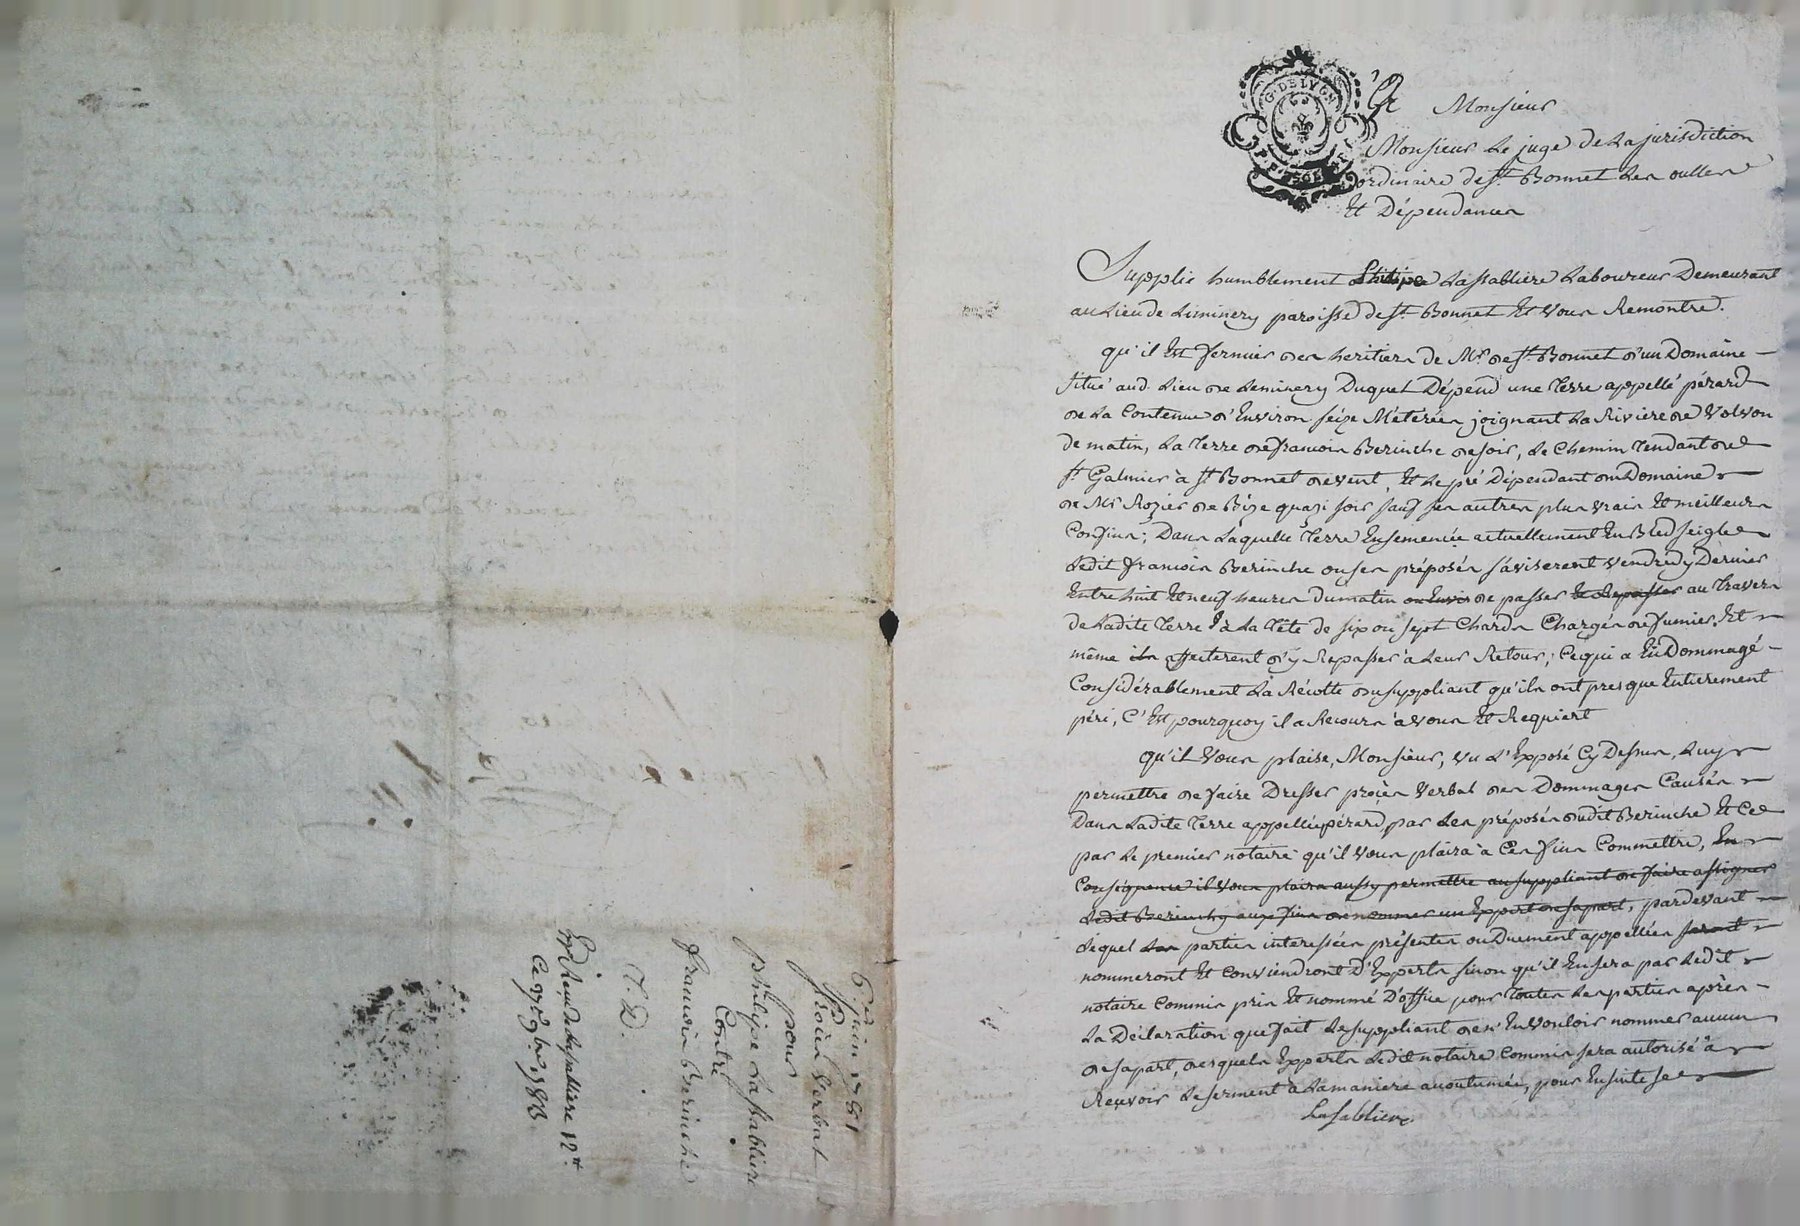 G. DE LYON
Monsieur
Monsieur Le juge de La jurisdiction
ordinaire de st. Bonnet Les oulles
Et Dépendances
Supplie humblement philipe Lastabliere Laboureur Demeurant
au Lieu de Liminery paroisse de st. Bonnet Et Vous Remontre.
qu'il Est fermier des heritiers de Mr. de st. Bonnet d'un Domaine
situé aud. Lieu de Leminery Duquel Dépend une Terre appellé pérard
de La Contenue d'Environ seize Meterées joignant La Riviere de Volvon
de matin, La Terre de francois Berinche de soir, Le Chemin Tendant de
st. Galmier à st. Bonnet de vent, Et Le pré Dépendant du Domaine
de Mr. Rozier de Bize quazi soir sauf ses autres plus vrais Et meilleurs
Confins; Dans Laquelle Terre Ensemencée actuellement En Bled seigle
Ledit francois Berinche ou ses préposés s'aviserent vendredy Dernier
Entre huit Et neuf heures du matin ou Envir de passer Et Repasser au Travers
de Ladite Terre à La Tête de six ou sept Chards Chargés de fumier, Et
même ils affecterent d'y Repasser à Leur Retour; Ce qui a Endommagé
Considérablement La Récolte du suppliant qu'ils ont presque Entierement
péri, C'Est pourquoy il a Recours à vous Et Requiert
qu'il Vous plaise, Monsieur, vu L'Exposé Cy Dessus, Luy
permettre de faire Dresser procès verbal des Dommages Causés
Dans Ladite Terre appellée pérard, par Les préposés dudit Berinche Et Ce
par Le premier notaire qu'il vous plaira à Ces fins Commettre, En
Conséquence il vous plaira aussy permettre au suppliant de faire assigner
Ledit Berinche aux fins de nommer un Expert de sa part, pardevant
Lequel Les parties interessées présentes ou Duement appellées seront
nommeront Et Conviendront D'Experts sinon qu'il En sera par Ledit
notaire Commis pris Et nommé D'office pour Toutes Les parties après
La Déclaration que fait Le suppliant de n'En vouloir nommer aucun
de sa part, desquels Experts Ledit notaire Commis sera autorisé à
Recevoir Le serment à La maniere accoutumée, pour Ensuite se
Lasabliere
6e. juin 1781
procès Verbal
pour
philipe Lastabliere
Contre
francois Berinche
T. D.